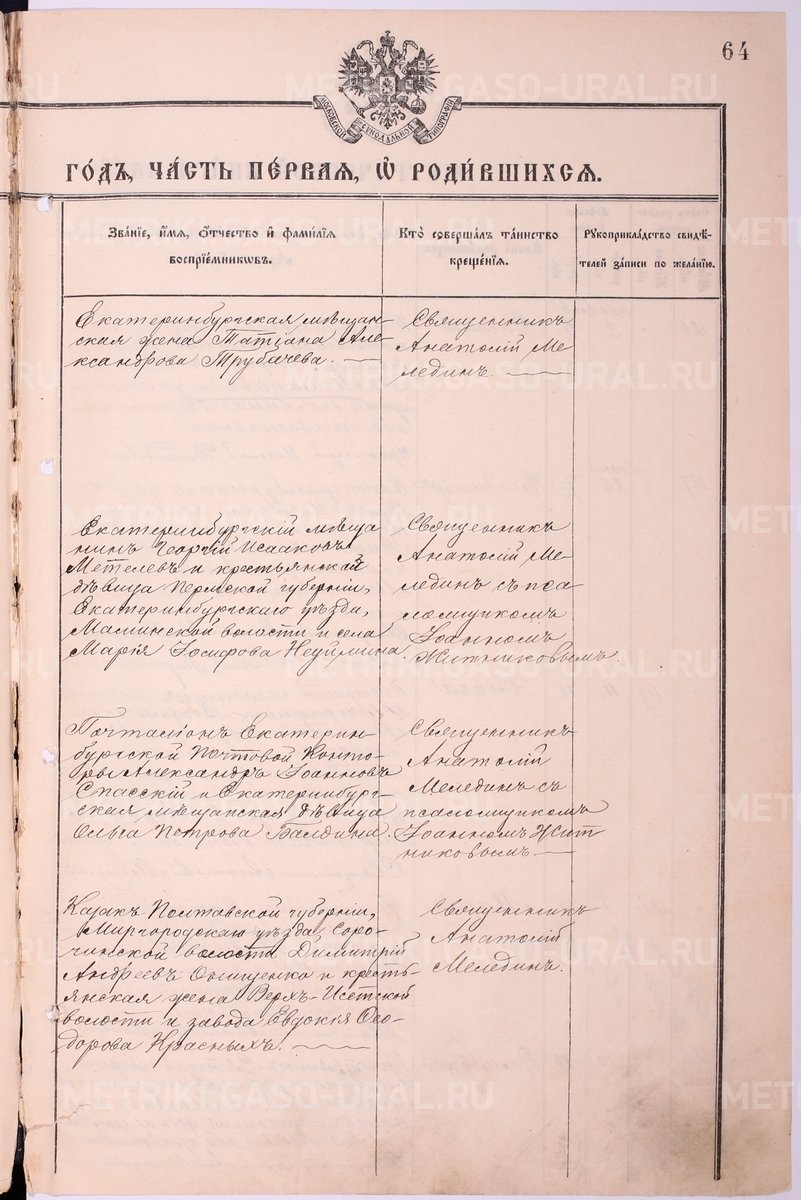 64
МОСКОВСКОЙ СѴНОДАЛЬНОЙ ТИПОГРАФІИ
ГО́ДЪ, ЧА́СТЬ ПЕ́РВАЯ, Ѽ РОДИ́ВШИХСЯ.
Зва́нїе, и҆́мя, ѻ҆́тчество и҆ фами́лїя
воспрїе́мникѡвъ.
Кто̀ соверша́лъ та́инство
креще́нїя.
Рꙋкоприкла́дство свидѣ́-
телей за́писи по жела́нїю.
Екатеринбургская мѣщан-
ская жена Татіана Але-
ксандрова Трубачева.
Священникъ
Анатолій Ме-
лединъ.
Екатеринбургскій мѣща
нинъ Георгій Исааковъ
Метелевъ и крестьянской
дѣвица Пермской губерніи,
Екатеринбургскаго уѣзда,
Маминской волости и села
Марія Іосифова Неуймина.
Священникъ
Анатолій Ме-
лединъ съ пса
ломщикомъ
Іоанномъ
Житниковымъ.
Почталіонъ Екатерин-
бургской Почтовой Конто-
ры Александръ Іоанновъ
Спасскій и Екатеринбург-
ская мѣщанская дѣвица
Ольга Петрова Балдина.
Священникъ
Анатолій
Мелединъ съ
псаломщикомъ
Іоанномъ Жит
никовымъ.
Казакъ Полтавской губерніи,
Миргородскаго уѣзда, Соро-
чинской волости Димитрій
Андреевъ Онищенко и кресть-
янская жена Верхъ-Исетской
волости и завода Евдокія Ѳео-
дорова Красныхъ.
Священникъ
Анатолій
Мелединъ.
METRIKI.GASO-URAL.RU